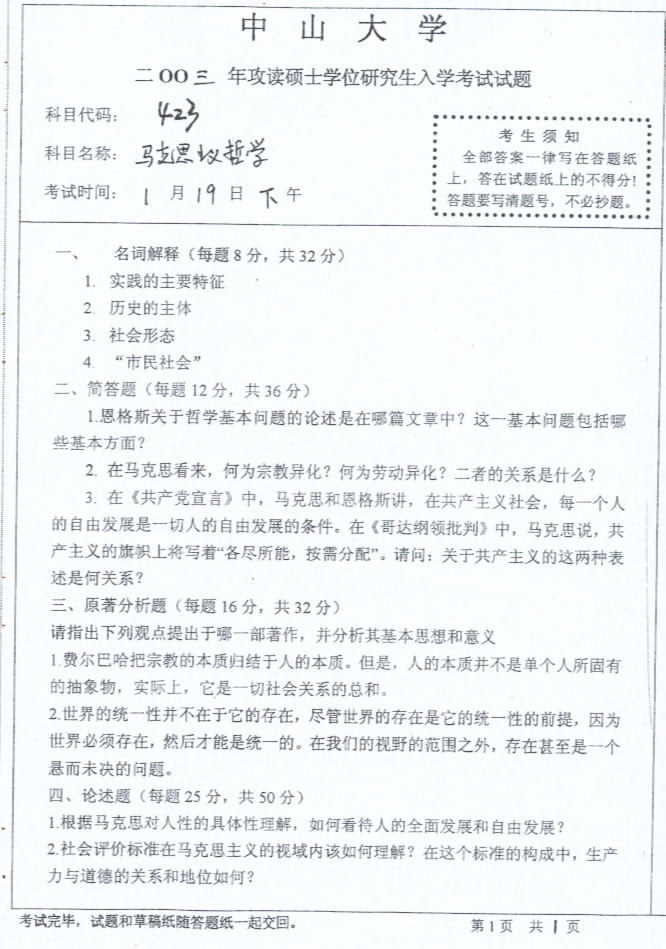 中山大学
二OO三 年攻读硕士学位研究生入学考试试题
科目代码： 423
科目名称： 马克思主义哲学
考试时间： 1 月 19 日 下 午
考 生 须 知
全部答案一律写在答题纸
上，答在试题纸上的不得分！
答题要写清题号，不必抄题。
一、 名词解释（每题 8 分，共 32 分）
1. 实践的主要特征
2. 历史的主体
3. 社会形态
4. “市民社会”
二、简答题（每题 12 分，共 36 分）
1.恩格斯关于哲学基本问题的论述是在哪篇文章中？这一基本问题包括哪
些基本方面？
2. 在马克思看来，何为宗教异化？何为劳动异化？二者的关系是什么？
3. 在《共产党宣言》中，马克思和恩格斯讲，在共产主义社会，每一个人
的自由发展是一切人的自由发展的条件。在《哥达纲领批判》中，马克思说，共
产主义的旗帜上将写着“各尽所能，按需分配”。请问：关于共产主义的这两种表
述是何关系？
三、原著分析题（每题 16 分，共 32 分）
请指出下列观点提出于哪一部著作，并分析其基本思想和意义
1.费尔巴哈把宗教的本质归结于人的本质。但是，人的本质并不是单个人所固有
的抽象物，实际上，它是一切社会关系的总和。
2.世界的统一性并不在于它的存在，尽管世界的存在是它的统一性的前提，因为
世界必须存在，然后才能是统一的。在我们的视野的范围之外，存在甚至是一个
悬而未决的问题。
四、论述题（每题 25 分，共 50 分）
1.根据马克思对人性的具体性理解，如何看待人的全面发展和自由发展？
2.社会评价标准在马克思主义的视域内该如何理解？在这个标准的构成中，生产
力与道德的关系和地位如何？
考试完毕，试题和草稿纸随答题纸一起交回。
第 1 页 共 1 页